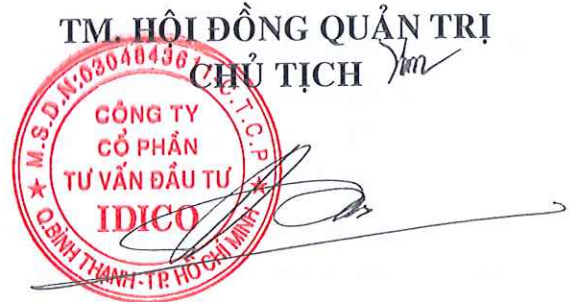 TM. HỘI ĐỒNG QUẢN TRỊ
CHỦ TỊCH
M.S.D.N:0304043617-C.T.C.P
CÔNG TY
CỔ PHẦN
TƯ VẤN ĐẦU TƯ
IDICO
Q.BÌNH THẠNH-TP. HỒ CHÍ MINH